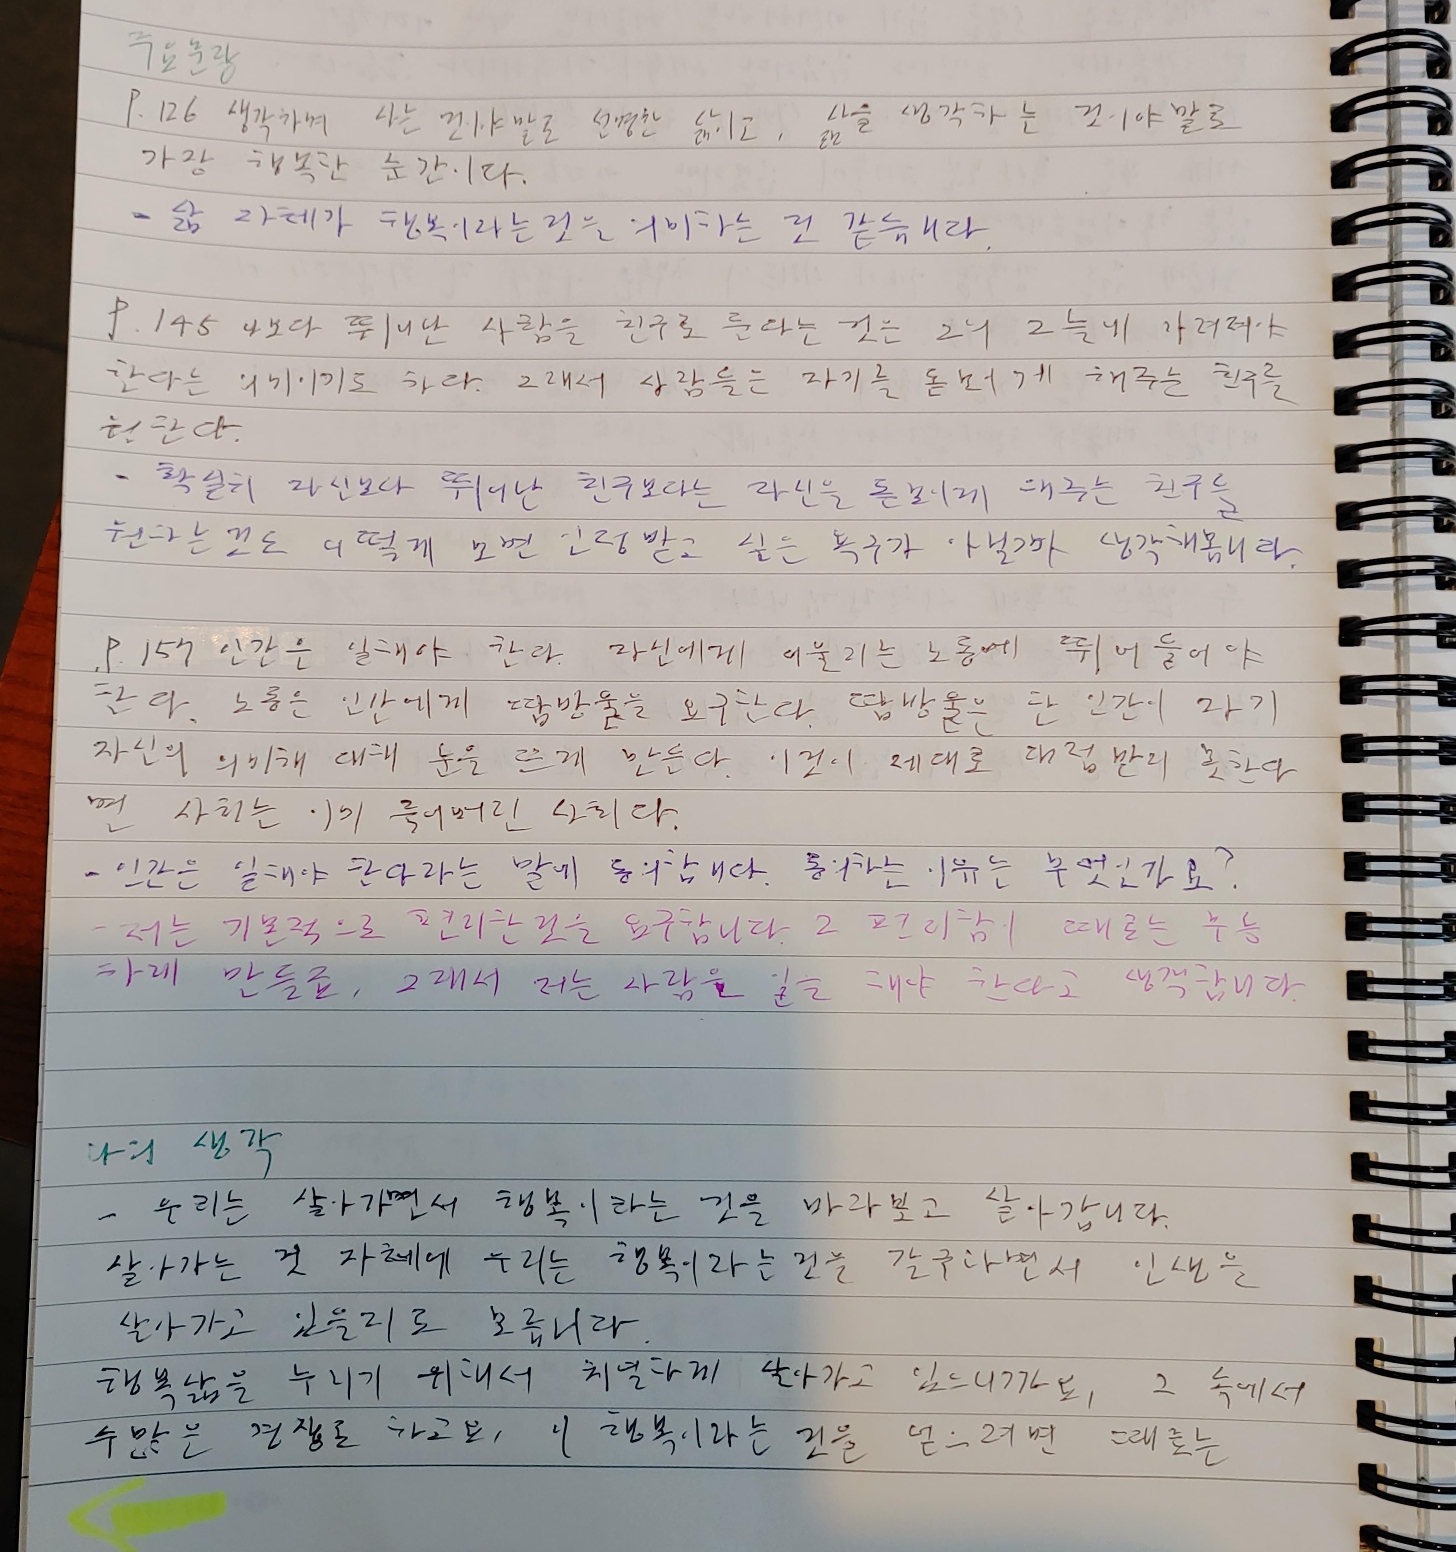 주요문장
P.126 생각하며 사는 것이야말로 선명한 삶이고, 삶을 생각하는 것이야말로
가장 행복한 순간이다.
- 삶 자체가 행복이라는것을 의미하는 것 같습니다.
P.145 나보다 뛰어난 사람을 친구로 둔다는 것은 그의 그늘에 가려져야
한다는 의미이기도 하다. 그래서 사람들은 자기를 돋보이게 해주는 친구를
원한다.
- 확실히 자신보다 뛰어난 친구보다는 자신을 돋보이게 해주는 친구를
원하는것도 어떻게 보면 인정받고 싶은 욕구가 아닐까 생각해봅니다.
P.157 인간은 일해야 한다. 자신에게 어울리는 노동에 뛰어들어야
한다. 노동은 인간에게 땀방울을 요구한다. 땀방울은 한 인간이 자기
자신의 의미에 대해 눈을 뜨게 만든다. 이것이 제대로 대접받지 못한다
면 사회는 이미 죽어버린 사회다.
- 인간은 일해야 한다라는 말에 동의합니다. 동의하는 이유는 무엇인가요?
- 저는 기본적으로 편리한것을 요구합니다. 그 편리함이 때로는 무능
하게 만들죠, 그래서 저는 사람은 일을 해야 한다고 생각합니다.
나의 생각
- 우리는 살아가면서 행복이라는 것을 바라보고 살아갑니다.
살아가는 것 자체에 우리는 행복이라는것을 갈구하면서 인생을
살아가고 있을지도 모릅니다.
행복삶을 누리기 위해서 치열하게 살아가고 있으니까요, 그 속에서
수많은 경쟁도 하고요, 이 행복이라는 것을 얻으려면 때로는